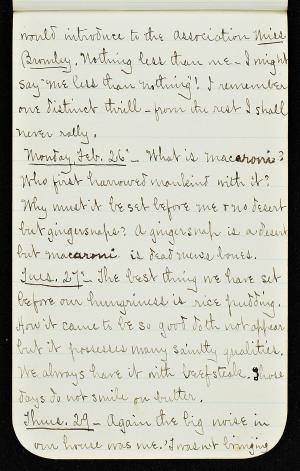 would introduce to the association Miss
Bromley. Nothing less than me - I might
say "me less than nothing"! I remember
one distinct thrill - from the rest I shall
never rally.
Monday, Feb. 26" - What is macaroni?
Who first harrowed mankind with it?
Why must it be set before me & no desert
but gingersnaps? A gingersnap is a desert
but macaroni is dead mens bones.
Tues. 27" - The best thing we have set
before our hungriness is rice pudding.
How it came to be so good doth not appear
but it possesses many saintly qualities.
We always have it with beefsteak. Those
days do not smile on butter.
Thurs. 29 - Again the big noise in
our house was me. I wasnt bringing